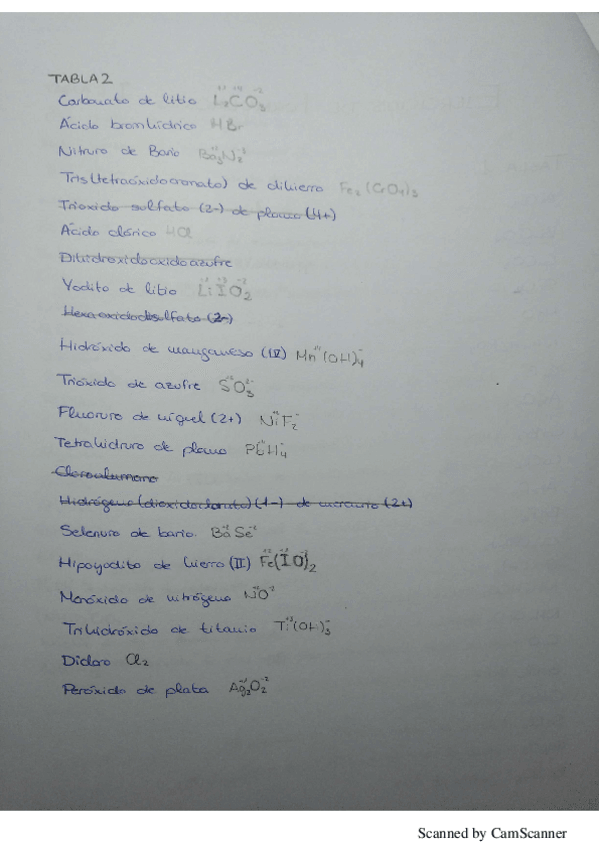 TABLA 2
Carbonato de litio Li2CO3
Ácido bromhídrico HBr
Nitruro de Bario Ba3N2
Tris(tetraóxidocromato) de dihierro Fe2(CrO4)3
Trioxido sulfato (2-) de plomo (4+)
Ácido clórico HCl
Dihidroxidooxidoazufre
Yodito de litio LiIO2
Hexaoxidodisulfato (2-)
Hidróxido de manganeso (IV) Mn(OH)4
Trióxido de azufre SO3
Fluoruro de níquel (2+) NiF2
Tetrahidruro de plomo PbH4
Hidrógeno (dioxidoclorato) (1-) de mercurio (2+)
Selenuro de bario BaSe
Hipoyodito de hierro (II) Fe(IO)2
Monóxido de nitrógeno NO
Trihidróxido de titanio Ti(OH)3
Dicloro Cl2
Peróxido de plata Ag2O2
Scanned by CamScanner